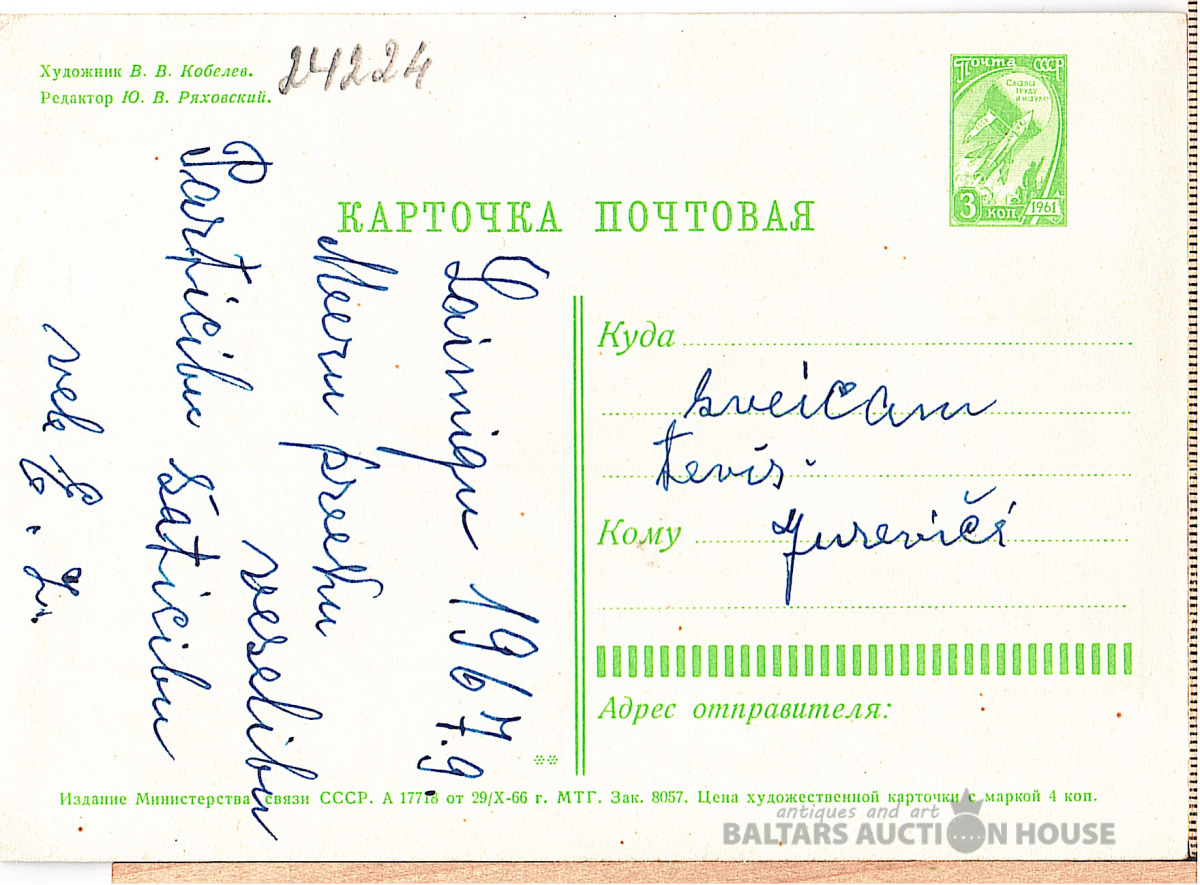 Художник В. В. Кобелев.
Редактор Ю. В. Ряховский.
24224
Почта СССР
Слава
труду
и науке
3 коп
1961
КАРТОЧКА ПОЧТОВАЯ
Laimigu 1967.g.
Meeru preeku
veselibu
Partücibu satücibu
Куда
sveicam
tevis.
Кому
Jurevičs
Адрес отправителя:
**
Издание Министерства связи СССР. А 17718 от 29/X-66 г. МТГ. Зак. 8057. Цена художественной карточки с маркой 4 коп.
antiques and art
BALTARS AUCTION HOUSE